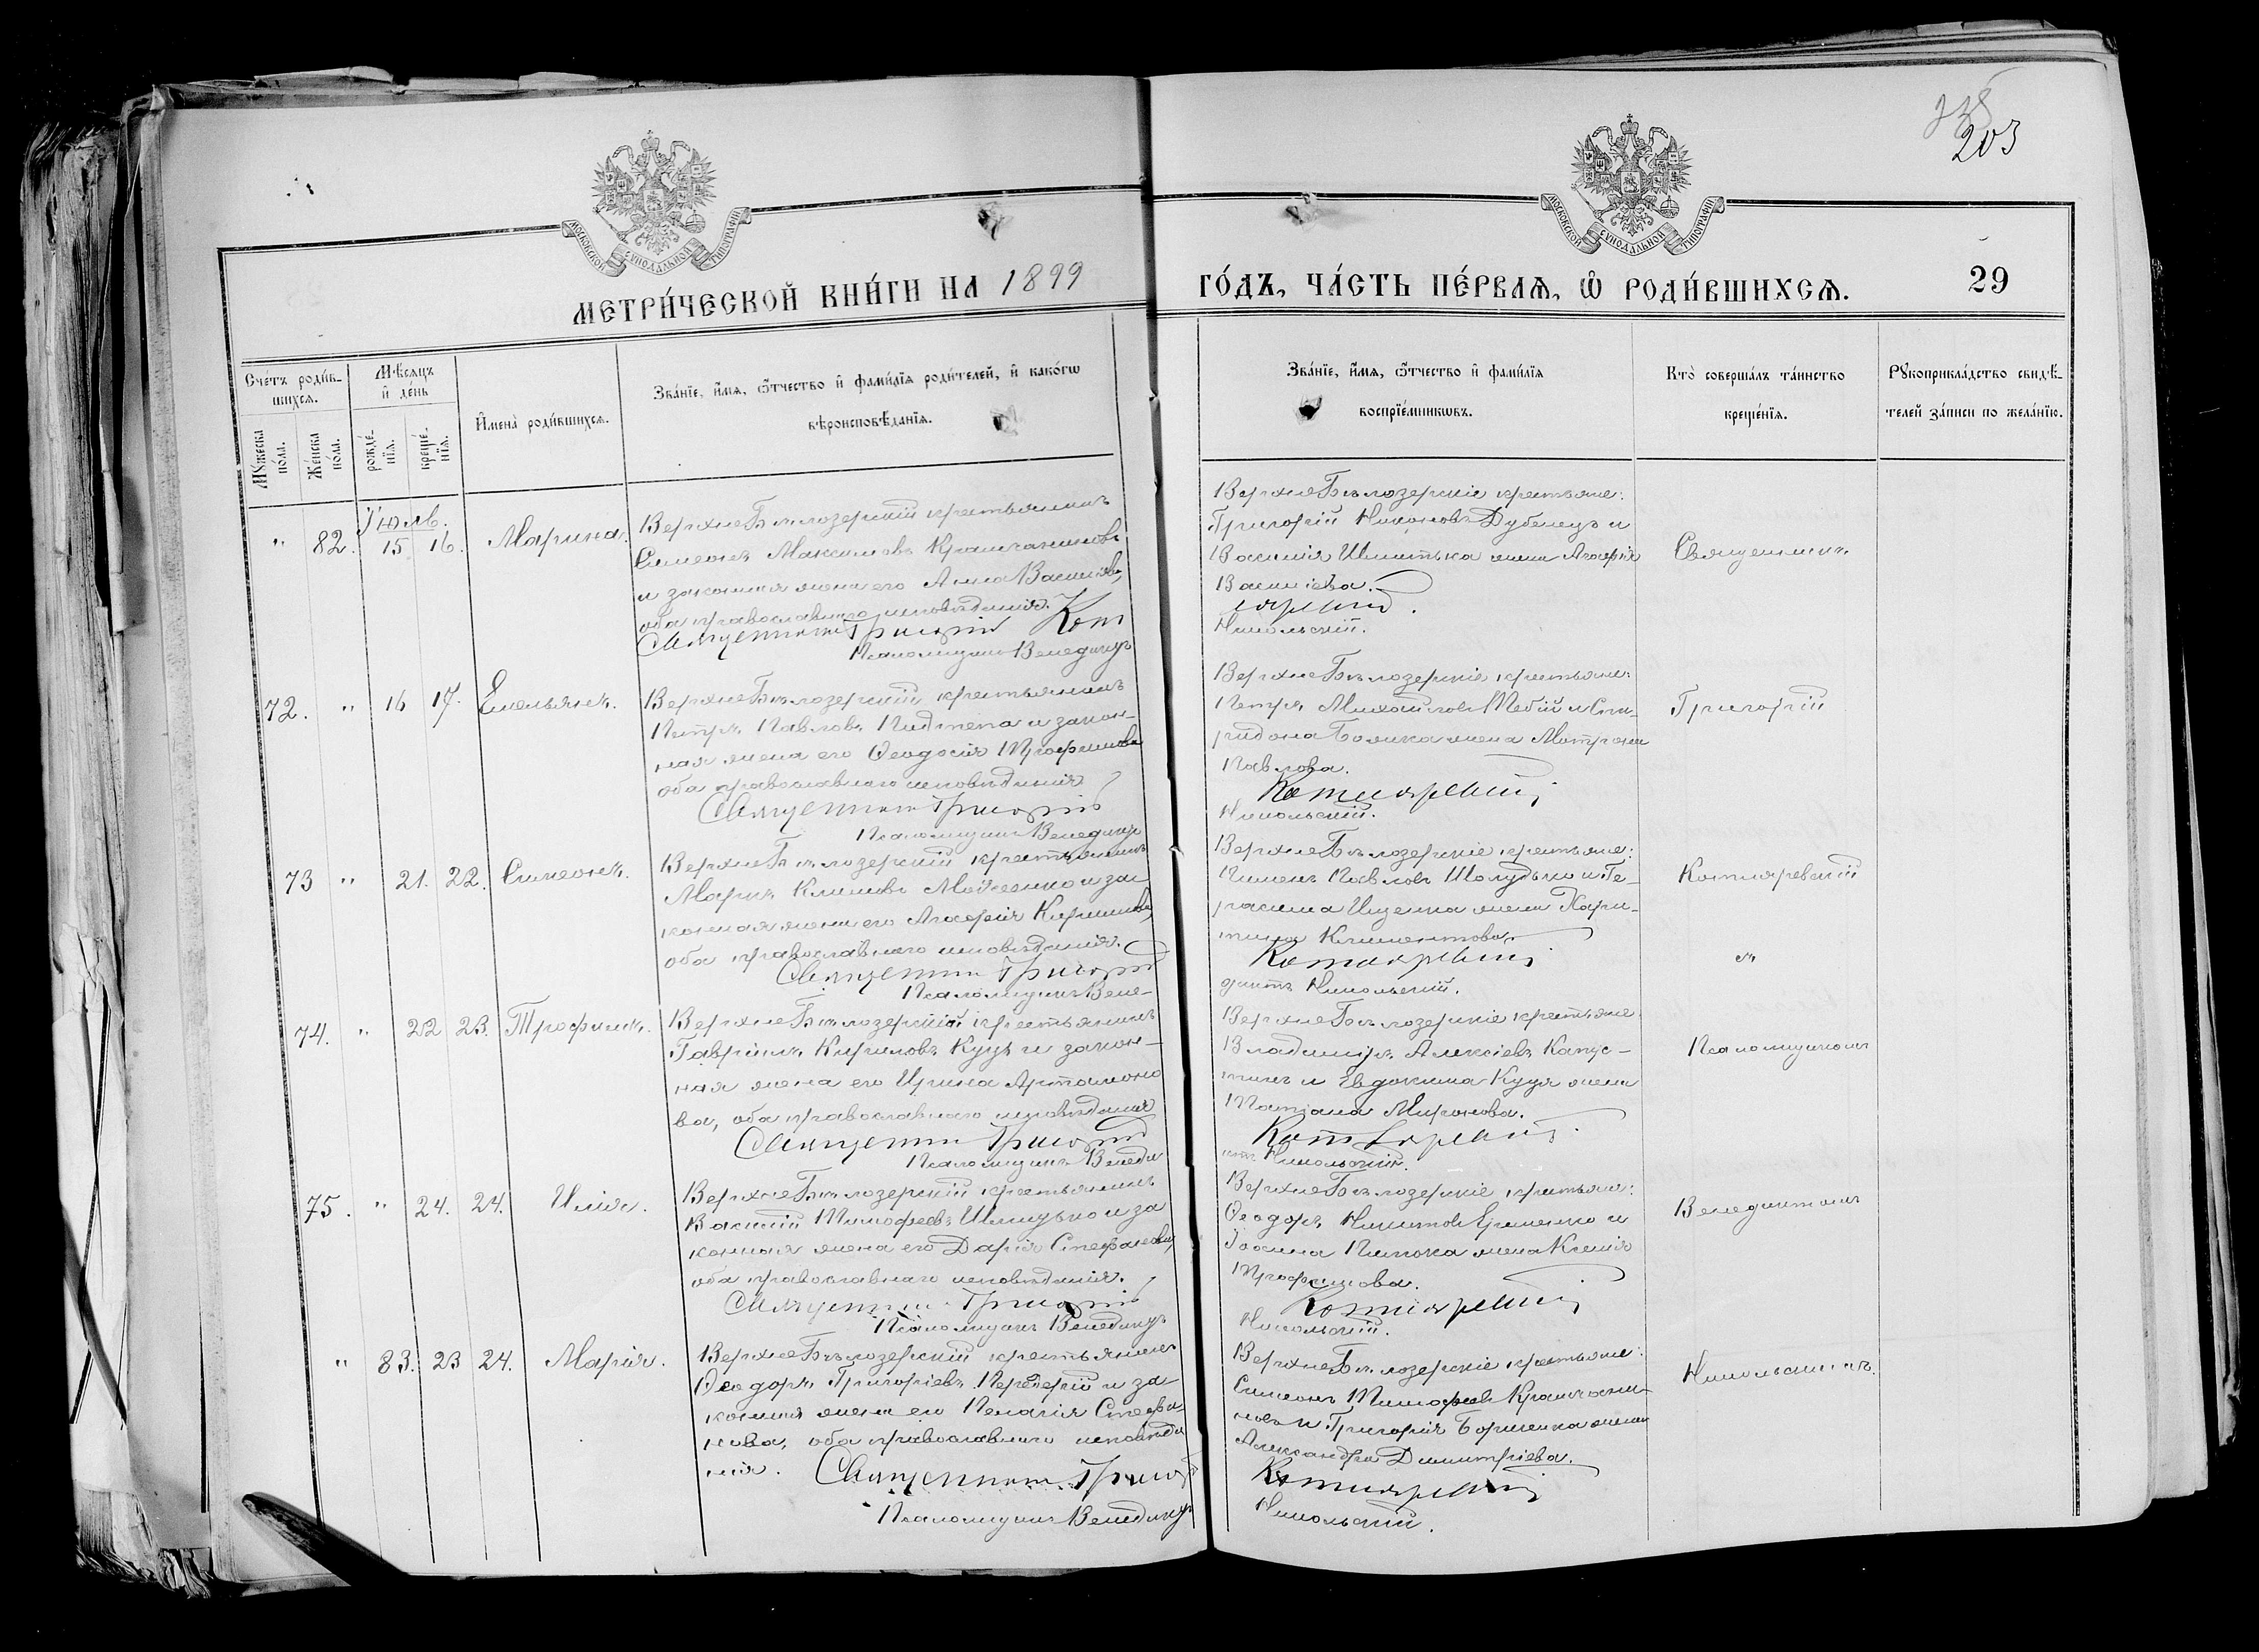 235
203
МОСКОВСКОЙ СѴНОДАЛЬНОЙ ТИПОГРАФІИ
МОСКОВСКОЙ СѴНОДАЛЬНОЙ ТИПОГРАФІИ
МЕТРИ́ЧЕСКОЙ КНИ́ГИ НА 1899
ГО́ДЪ, ЧА́СТЬ ПЕ́РВАѦ, Ѡ҆ РОДИ́ВШИХСѦ.
29
Сче́тъ роди́в-
шихсѧ.
Мꙋ́жеска по́ла.
Же́нска по́ла.
Мѣ́сѧцъ
и҆ де́нь
рожде́-
нїѧ.
креще́-
нїѧ.
И҆мена̀ роди́вшихсѧ.
Зва́нїе, и҆́мѧ, ѻ҆́тчество и҆ фами́лїѧ роди́телей, и҆ како́гѡ
вѣроисповѣ́данїѧ.
Зва́нїе, и҆́мѧ, ѻ҆́тчество и҆ фами́лїѧ
воспрїе́мникѡвъ.
Кто̀ соверша́лъ та́инство
креще́нїѧ.
Рꙋкоприкла́дство свидѣ́-
телей за́писи по жела́нїю.
Іюль.
" 82. 15 16. Марина.
ВерхнеБѣлозерскій крестьянинъ
Симеонъ Максимовъ
и законная жена его Анна Васильева,
оба православнаго исповѣданія.
Священникъ Григорій Кот
Псаломщикъ Венедиктъ
ВерхнеБѣлозерскіе крестьяне:
Григорій Никоновъ Дубенецъ и
Василія жена Агафія
Васильева.
ляревскій.
Никольскій.
Священникъ
72. " 16 17. Емельянъ.
ВерхнеБѣлозерскій крестьянинъ
Петръ Павловъ Пидтепа и закон-
ная жена его Ѳеодосія Трофимова
оба православнаго исповѣданія
Священникъ Григорій
Псаломщикъ Венедиктъ
ВерхнеБѣлозерскіе крестьяне:
Петръ Михайловъ и Спи-
ридона жена Матрона
Павлова.
Котляревскій
Никольскій.
Григорій
73 " 21. 22. Симеонъ.
ВерхнеБѣлозерскій крестьянинъ
Маркъ Климовъ и за-
конная жена его Агафія Кириллова,
оба православнаго исповѣданія.
Священникъ Григорій
Псаломщикъ Вене-
ВерхнеБѣлозерскіе крестьяне:
Пименъ Павловъ Шолудько и Ге-
расима Ищенка жена Хари-
тина Климентова.
Котляревскій
диктъ Никольскій.
Котляревскій
и
74. " 22 23. Трофимъ.
ВерхнеБѣлозерскій крестьянинъ
Гавріилъ Кириловъ Куцъ и закон-
ная жена его Ирина Артамоно
ва, оба православнаго исповѣданія
Священникъ Григорій
Псаломщикъ Венеди
ВерхнеБѣлозерскіе крестьяне
Владиміръ Алексіевъ Капус-
тинъ и Евдокима Куця жена
Татіана Миронова.
Котляревскій.
ктъ Никольскій.
Псаломщикомъ
75. " 24. 24. Илія.
ВерхнеБѣлозерскій крестьянинъ
Василій Тимофеевъ и за
конная жена его Дарія Стефанова,
оба православнаго исповѣданія.
Священникъ Григорій
Псаломщикъ Венедиктъ
ВерхнеБѣлозерскіе крестьяне:
Ѳеодоръ Никитовъ и
Іоанна жена Ксенія
Трофимова.
Котляревскій
Никольскій.
Венедиктомъ
" 83. 23 24. Марія.
ВерхнеБѣлозерскій крестьянинъ
Ѳеодоръ Григоріевъ и за
конная жена его Пелагія Стефа-
нова, оба православнаго исповѣда
нія. Священникъ Григорій
Псаломщикъ Венедиктъ
ВерхнеБѣлозерскіе крестьяне:
Симеонъ Тимофеевъ
и Григорія жена
Александра Димитріева.
Котляревскій
Никольскій.
Никольскимъ.